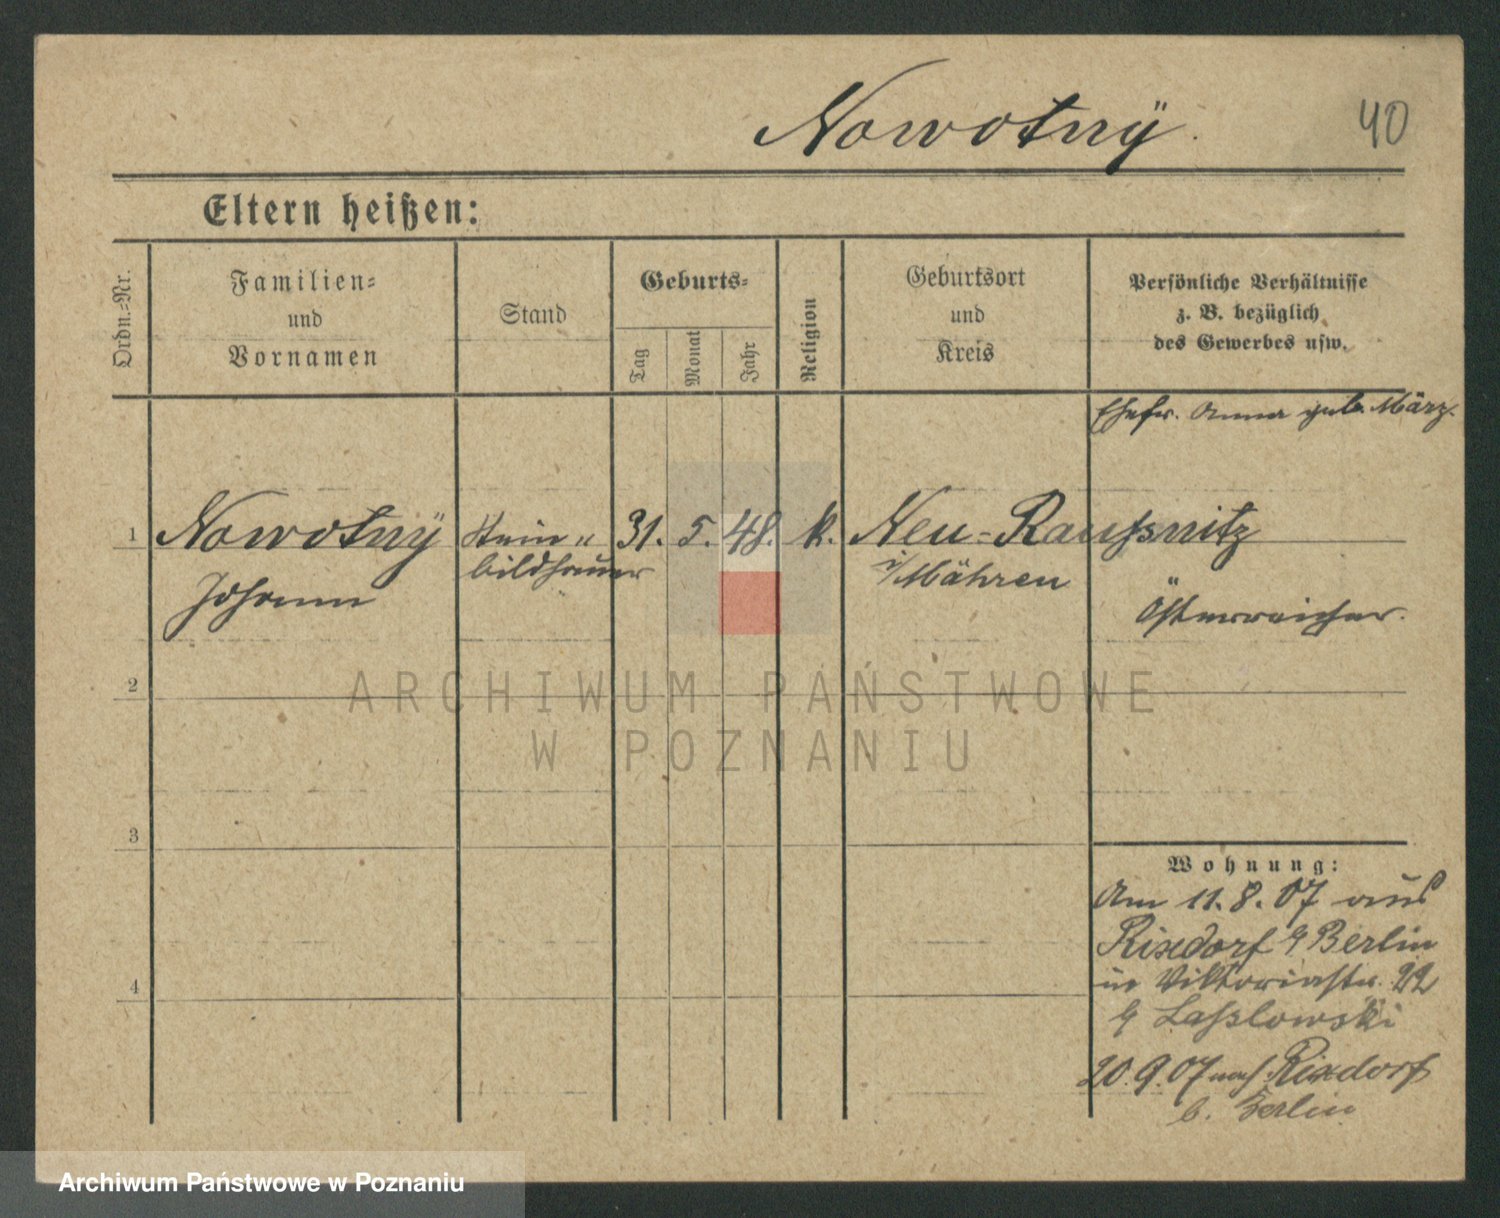 Nowotnÿ.
40
Eltern heißen:
Ordn.-Nr.
Familien-
und
Vornamen
Stand
Geburts-
Tag
Monat
Jahr
Religion
Geburtsort
und
Kreis
Persönliche Verhältnisse
z. B. bezüglich
des Gewerbes usw.
Ehefr. Anna geb. März.
1
Nowotnÿ
Johann
Stein-
bildhauer
31. 5. 48. k.
Neu-Raussnitz
i/Mähren
Österreicher.
2
3
4
Wohnung:
Am 11.8.07 aus
Rixdorf b/Berlin
in Viktoriastr. 22
b/ Lasslowski
20.9.07 nach Rixdorf
b. Berlin
ARCHIWUM PAŃSTWOWE
W POZNANIU
Archiwum Państwowe w Poznaniu